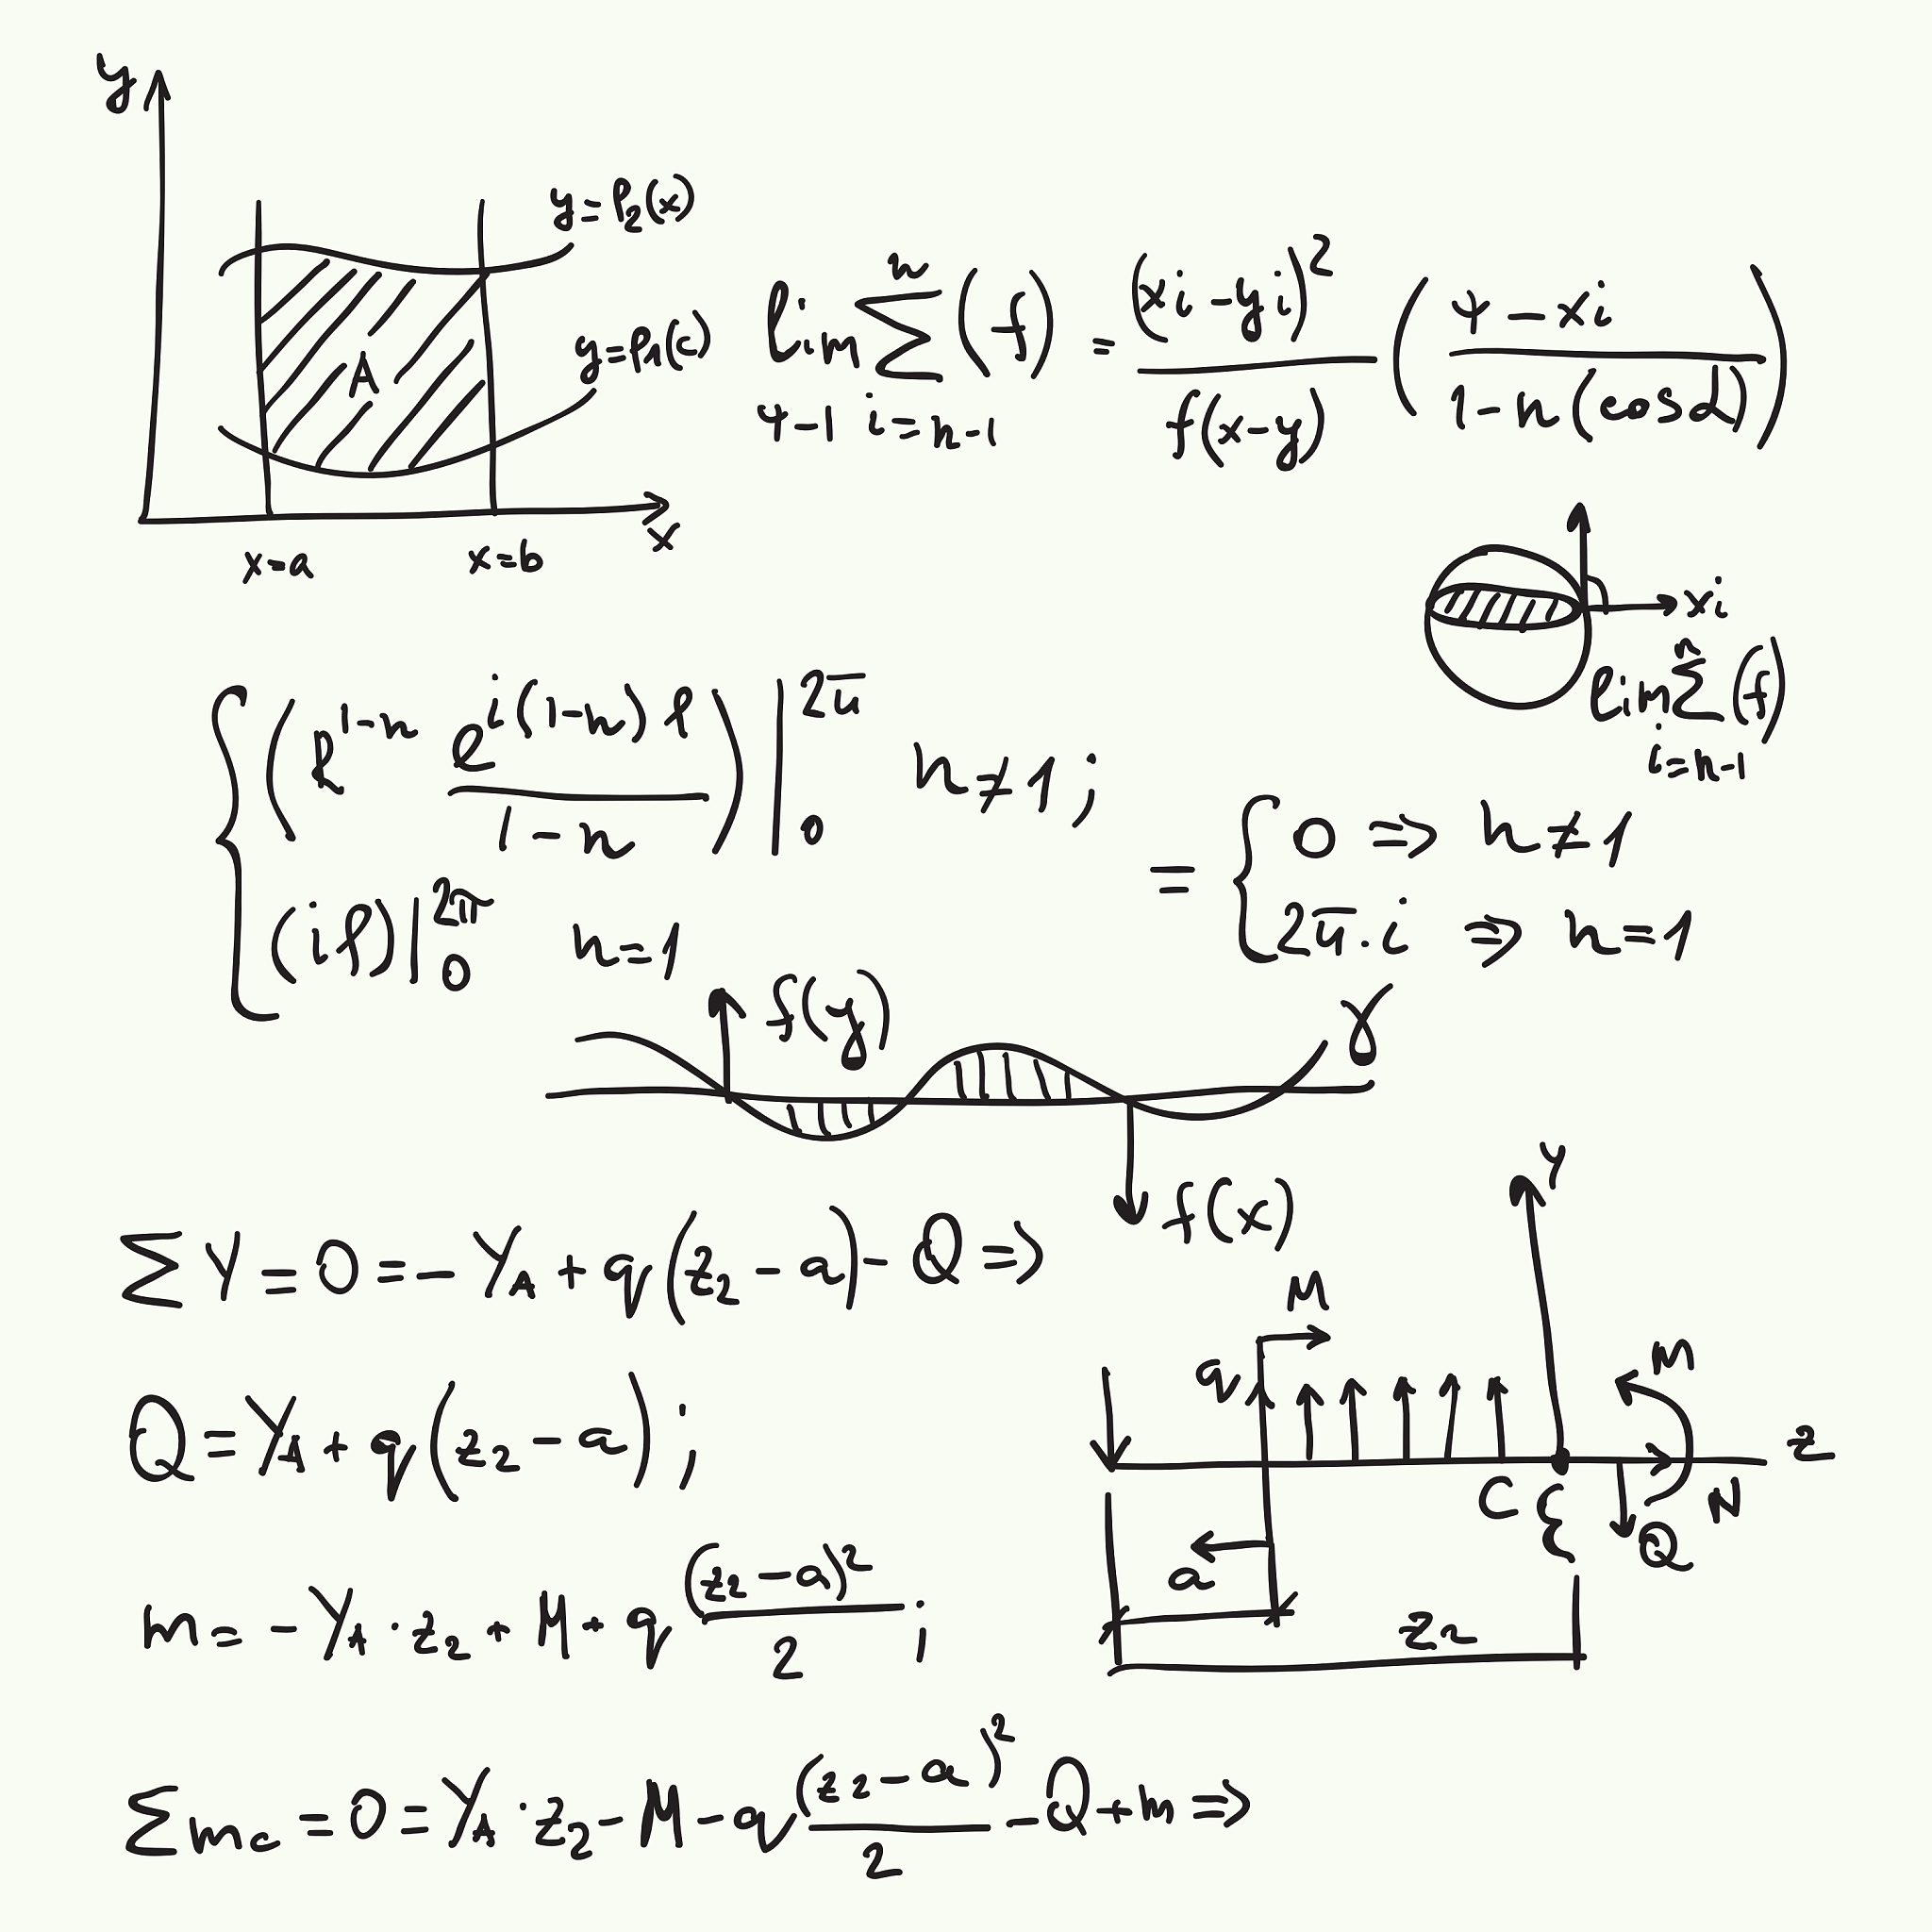 y
y=φ₂(x)
y=φ₁(c)
A
x=a
x=b
x
n
lim Σ (f) = (xi-yi)² / f(x-y) (ψ-xi / 1-n(cosα))
ψ-1 i=n-1
xi
n
lim Σ (f)
i=n-1
{ (R^1-n e^i(1-n)φ / 1-n) |₀^2π n≠1;
(iφ)|₀^2π n=1
= { 0 => n≠1
2π.i => n=1
f(y)
γ
f(x)
ΣY=0=-Y_A+q(z₂-a)-Q=>
Q=Y_A+q(z₂-a);
m=-Y_A·z₂+M+q (z₂-a)²/2;
Σm_c=0=Y_A·z₂-M-q (z₂-a)²/2-Q+m=>
y
M
q
M
z
C
N
Q
a
z₂